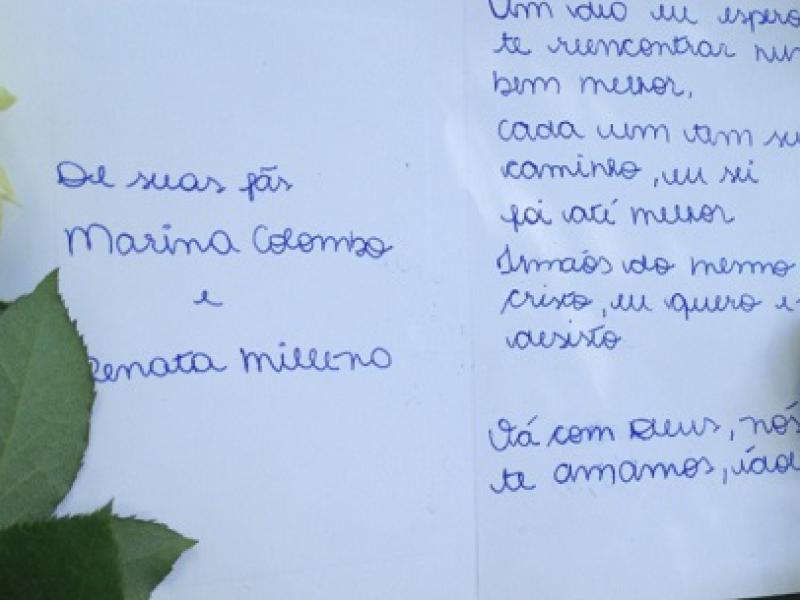 De suas fãs
Marina Colombo
e
Renata Milleno
Um dia eu espero
te reencontrar num
bem melhor,
cada um tem seu
caminho, eu sei
foi até melhor
Irmãos do mesmo
cristo, eu quero e
desisto
Vá com Deus, nós
te amamos,